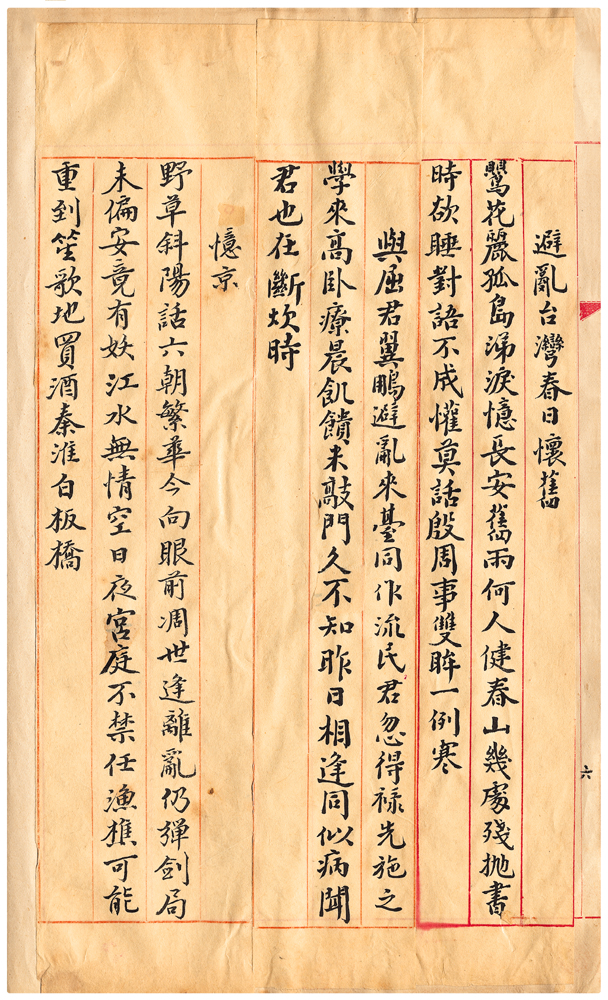 六
避亂台灣春日懷舊
鸎花麗孤島涕淚憶長安舊雨何人健春山幾處殘拋書
時欲睡對語不成懽莫話殷周事雙眸一例寒
與屈君翼鵬避亂來臺同作流民君忽得祿先施之
學來高臥療晨飢饋未敲門久不知昨日相逢同似病聞
君也在斷炊時
憶京
野草斜陽話六朝繁華今向眼前凋世逢離亂仍彈劍局
未偏安竟有妖江水無情空日夜宮庭不禁任漁樵可能
重到笙歌地買酒秦淮白板橋